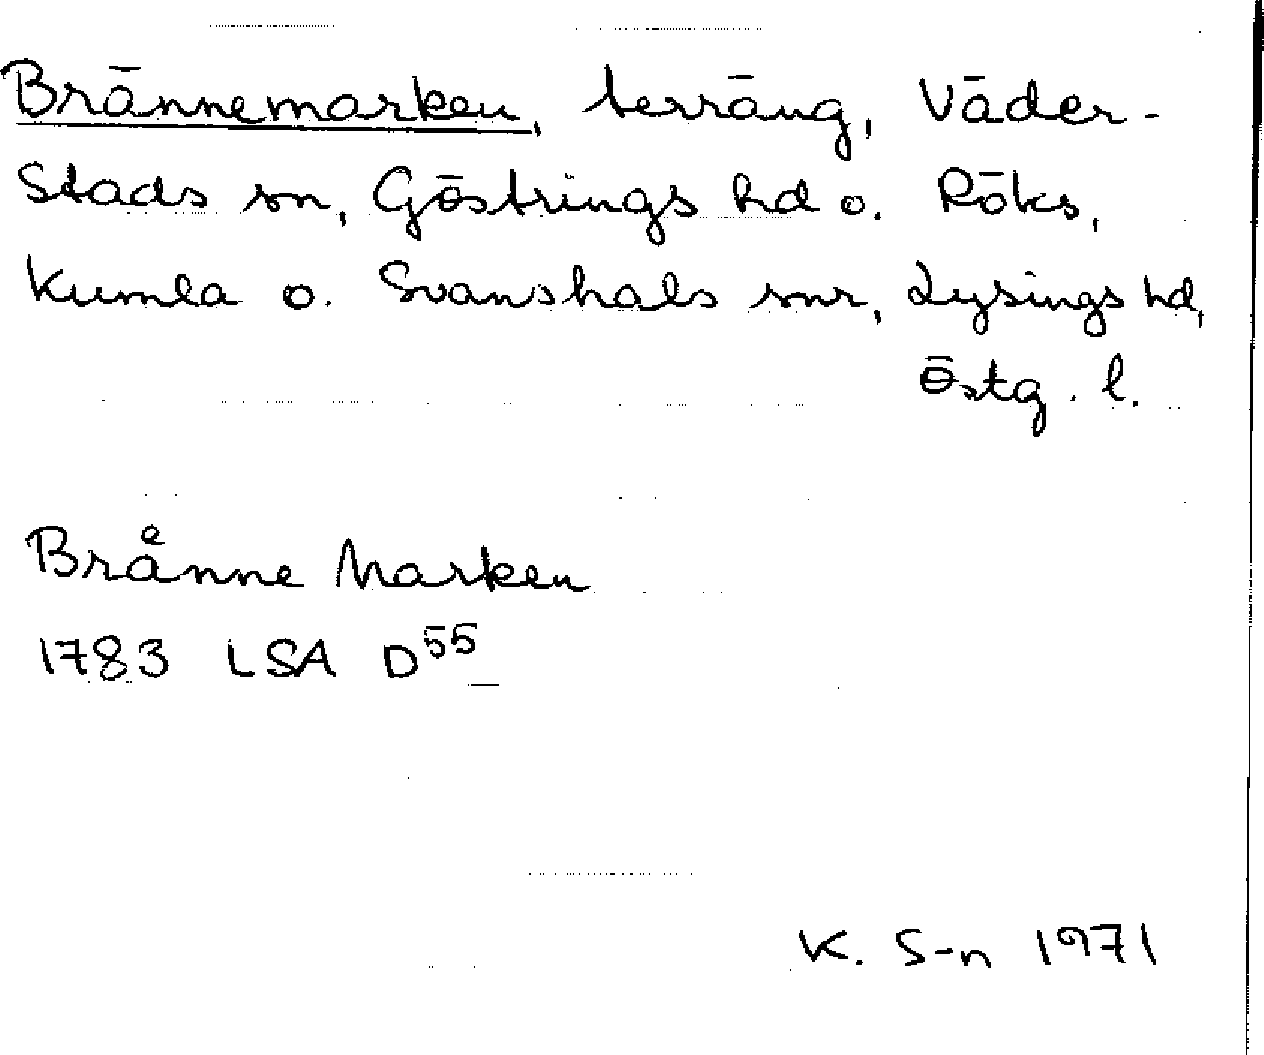 Brännemarken, terräng, Väder-
stads sn, Göstrings hd o. Röks,
Kumla o. Svanshals snr, Lysings hd,
Östg. l.
Brånne Marken
1783 LSA D55
K. S-n 1971